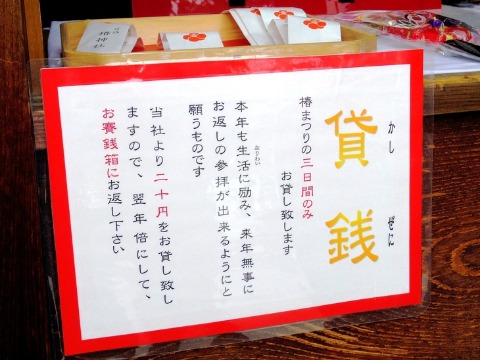 貸銭
かし ぜに
椿まつりの三日間のみ
お貸し致します
本年も生活に励み、来年無事に
なりわい
お返しの参拝が出来るようにと
願うものです
当社より二十円をお貸し致し
ますので、翌年倍にして、
お賽銭箱にお返し下さい
椿神社